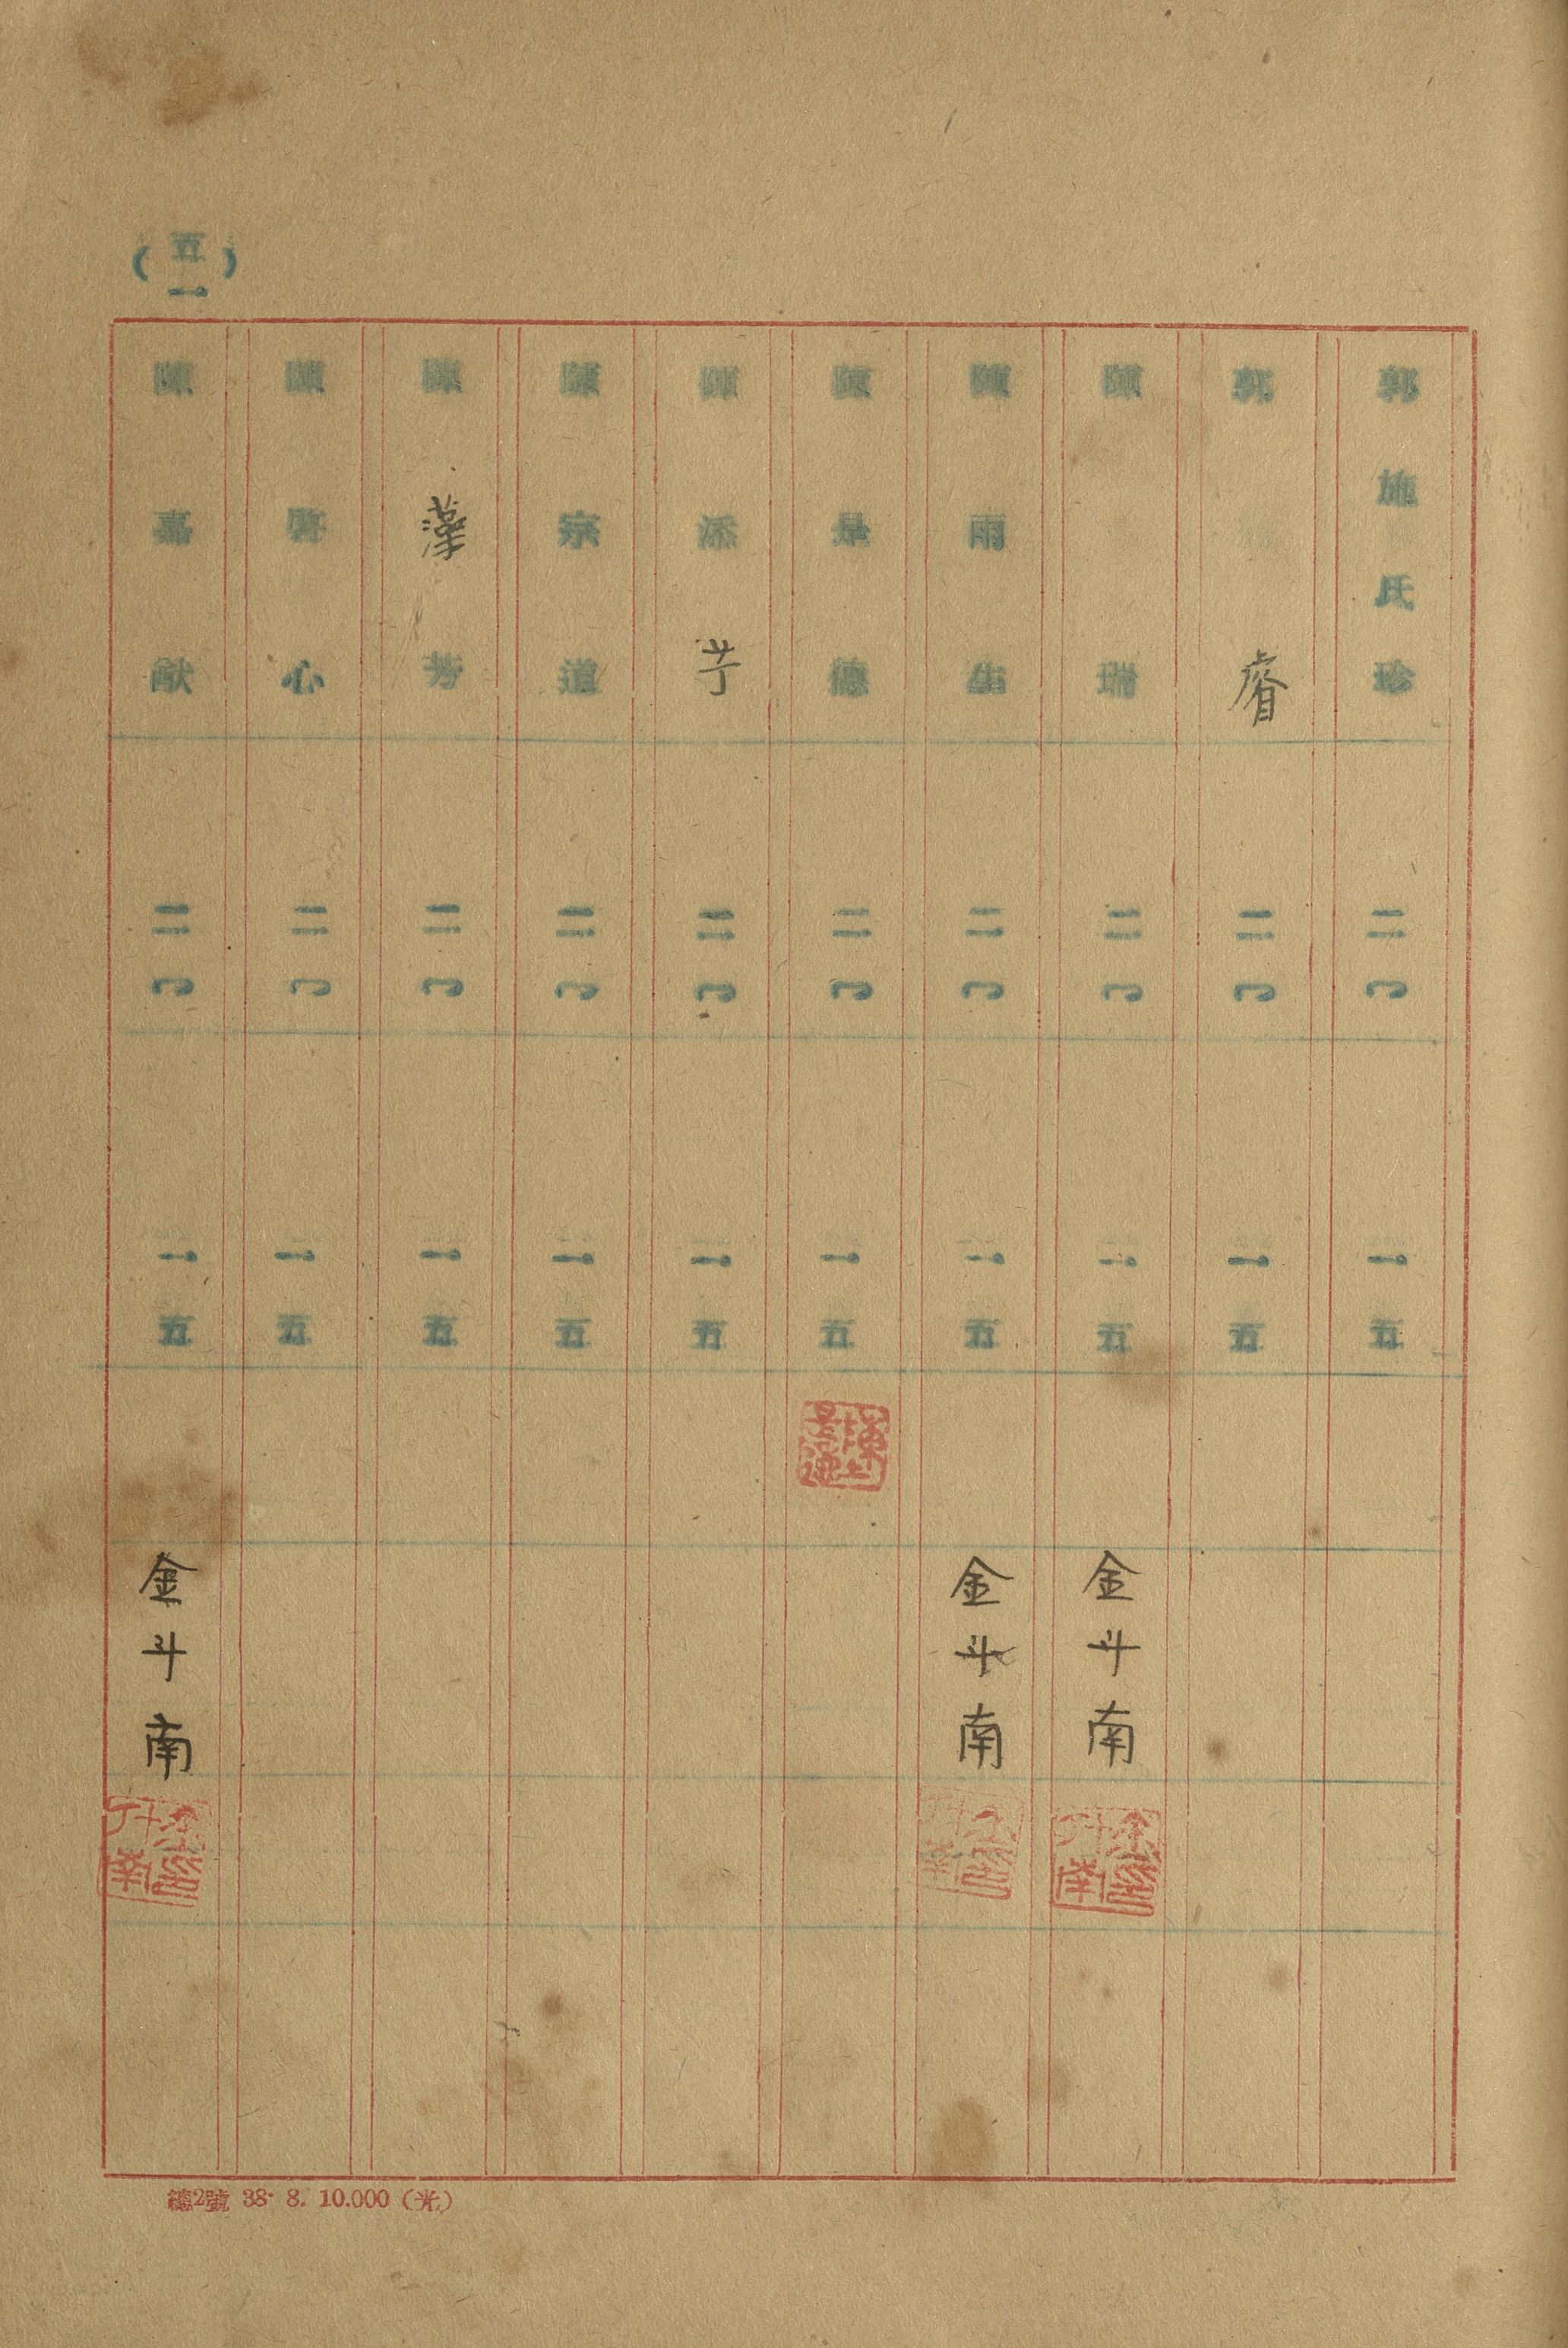 郭施氏珍 二 一五
郭 睿 二 一五
陳 瑞 二 一五 金斗南 金斗南印
陳雨生 二 一五 金斗南 金斗南印
陳是德 二 一五
陳添芋 二 一五
陳宗道 二 一五
陳漢芳 二 一五
陳啓心 二 一五
陳嘉猷 二 一五 金斗南 金斗南印
(五一)
總2號 38. 8. 10.000 (光)